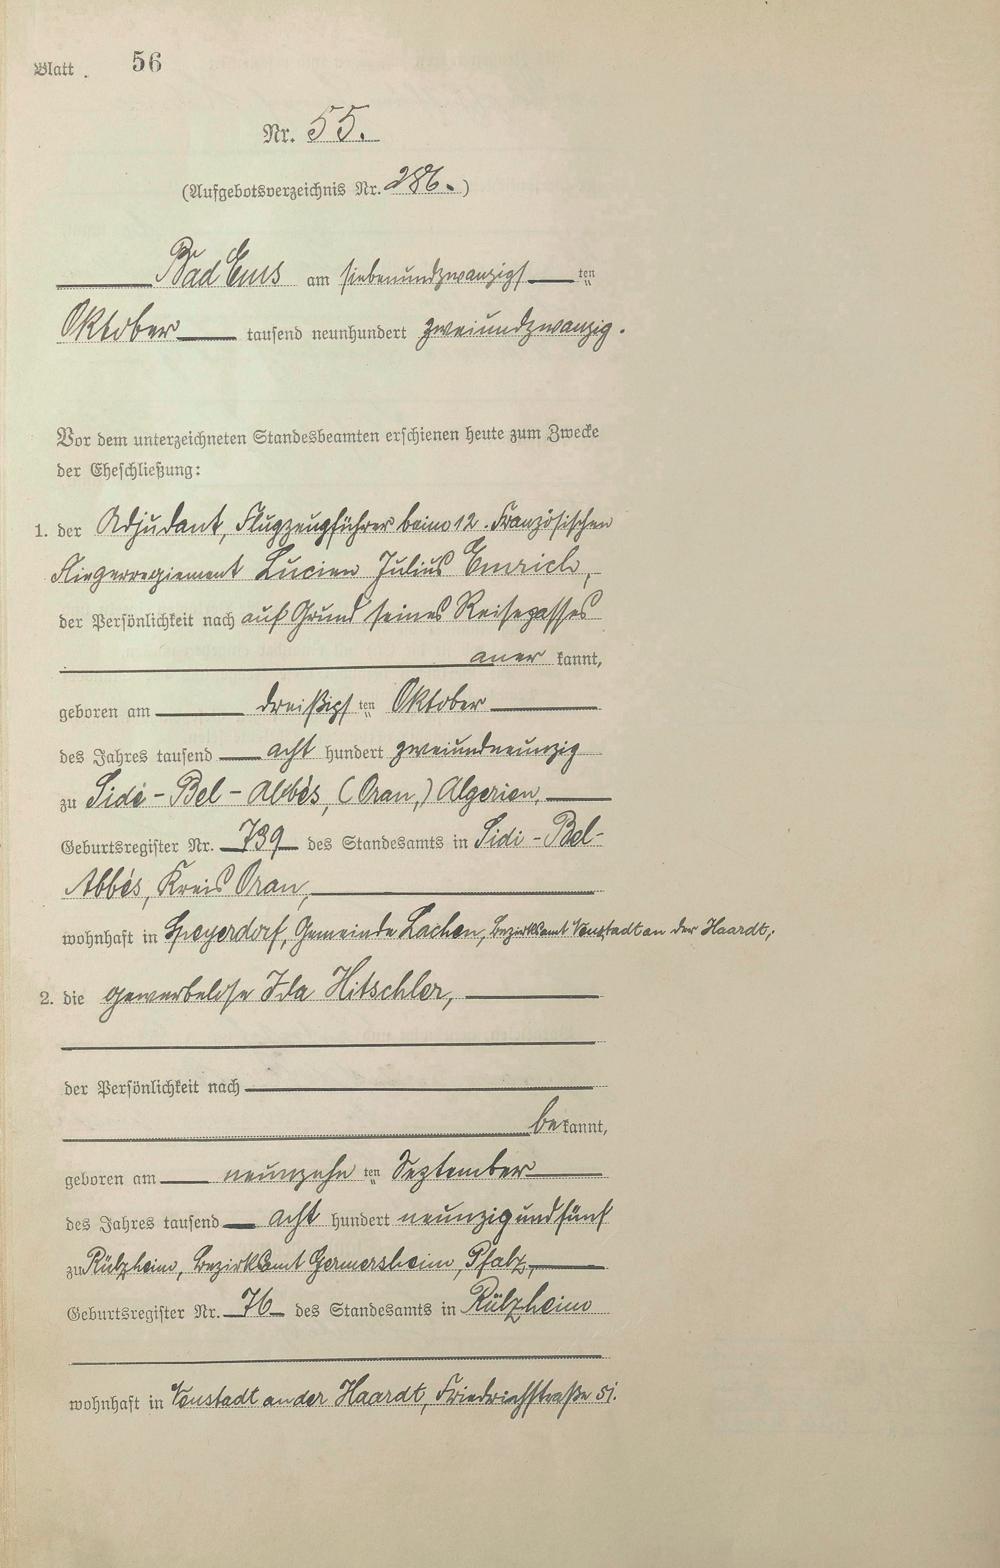 Blatt . 56
Nr. 55.
(Aufgebotsverzeichnis Nr. 286.)
Bad Ems am siebenundzwanzigs ten
Oktober tausend neunhundert zweiundzwanzig.
Vor dem unterzeichneten Standesbeamten erschienen heute zum Zwecke
der Eheschließung:
1. der Adjudant, Flugzeugführer beim 12. Französischen
Fliegerregiement Lucien Julius Emrich,
der Persönlichkeit nach auf Grund seines Reisepasses
aner kannt,
geboren am dreißigs ten Oktober
des Jahres tausend acht hundert zweiundneunzig
zu Sidi - Bel - Abbès, (Oran,) Algerien,
Geburtsregister Nr. 739 des Standesamts in Sidi - Bel-
Abbès, Kreis Oran,
wohnhaft in Speyerdorf, Gemeinde Lachen, Bezirksamt Neustadt an der Haardt,
2. die gewerbelose Ida Hitschler,
der Persönlichkeit nach
be kannt,
geboren am neunzehn ten September
des Jahres tausend acht hundert neunzig und fünf
zu Rülzheim, Bezirksamt Germersheim, Pfalz,
Geburtsregister Nr. 76 des Standesamts in Rülzheim
wohnhaft in Neustadt an der Haardt, Friedrichstraße 51.